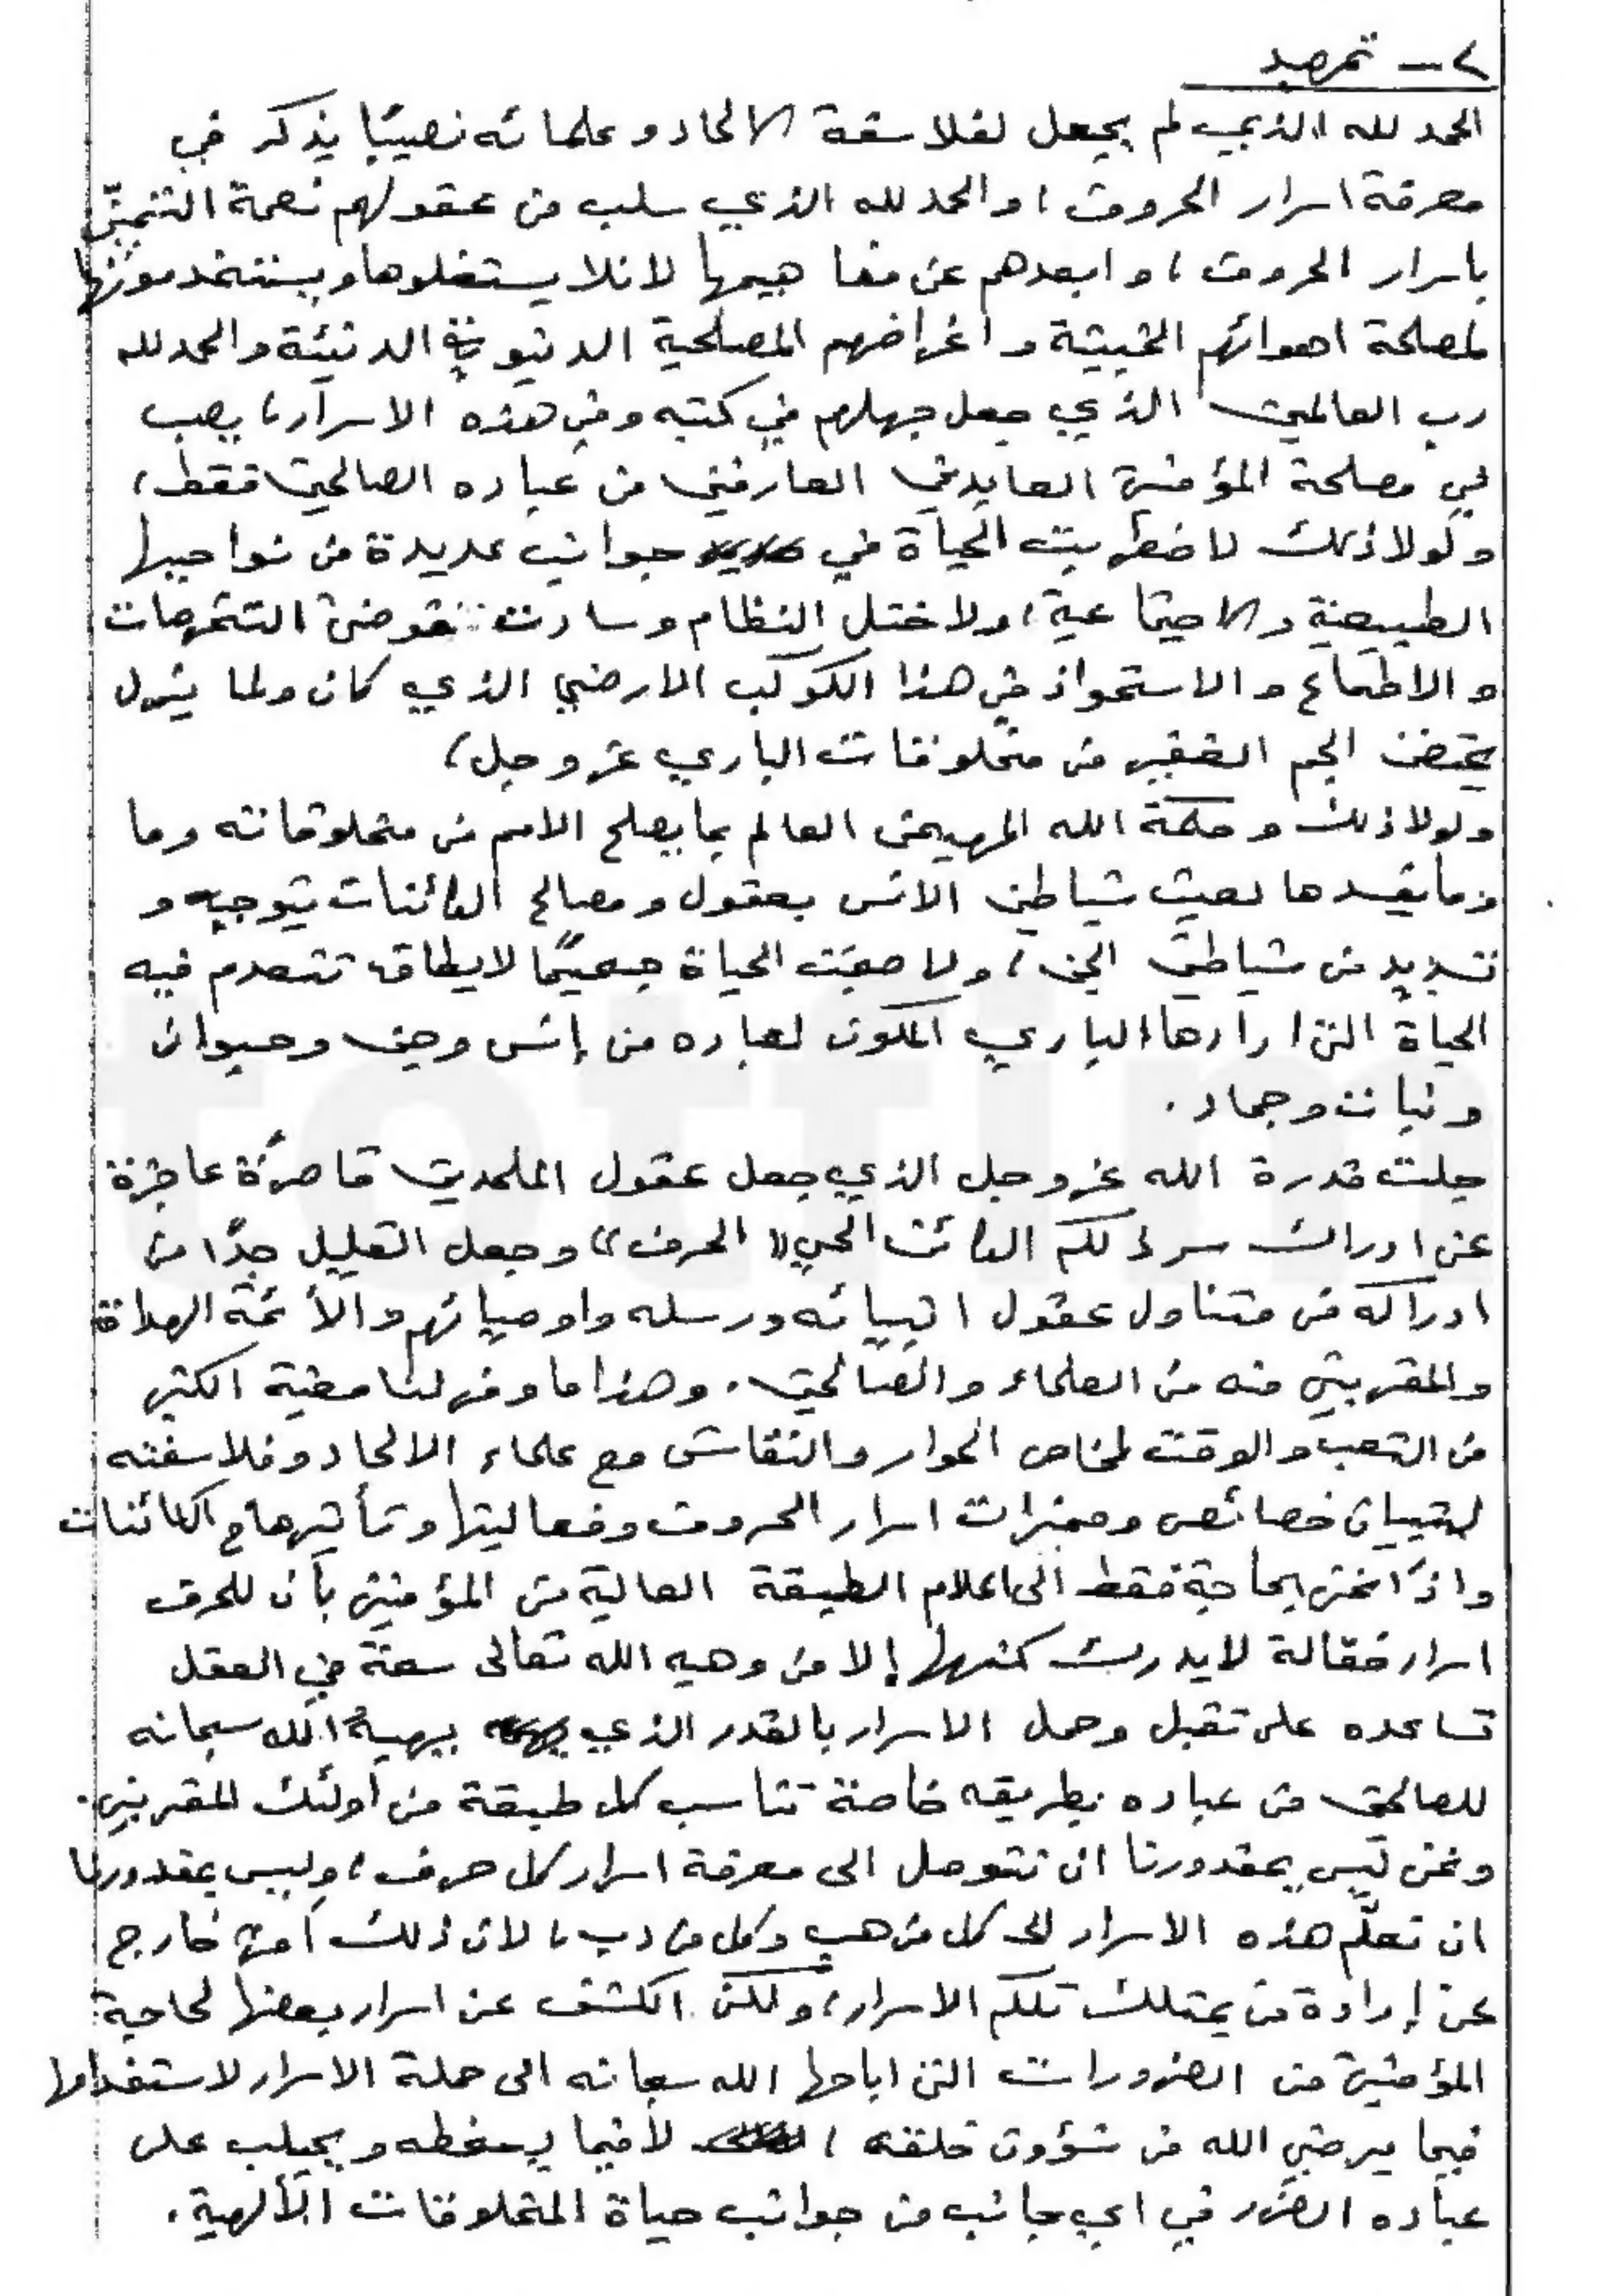 ٢- تمهيد
الحمد لله الذي لم يجعل لفلاسفة الالحاد وعلمائه نصيبًا يذكر في
معرفة اسرار الحروف، والحمد لله الذي سلب من عقولهم نعمة التنعّم
باسرار الحروف، وابعدهم عن مفاهيمها لانلا يستغلوها ويستخدمونها
لمصلحة اهوائهم الخبيثة واغراضهم المصلحية الدنيوية الدنيئة والحمد لله
رب العالمين الذي جعل جهلهم في كتبه وفي هذه الاسرار، يصب
في مصلحة المؤمنين العابدين العارفين من عباده الصالحين فقط،
ولولا ذلك لاضطربت الحياة في جوانب عديدة من نواحيها
الطبيعية والاجتماعية، ولاختل النظام وسادت فوضى
والاطماع والاستحواذ في هذا الكوكب الارضي الذي كان ولما يزل
يحتضن الجم الغفير من مخلوقات الباري عز وجل،
ولولا ذلك وحكمة الله المهيمن العالم بما يصلح الامم من مخلوقاته وما
وما يفسدها لعبث شياطين الانس بعقول ومصالح الكائنات بتوجيه و
تسديد من شياطين الجن، ولاصبحت الحياة جحيمًا لا يطاق تنعدم فيه
الحياة التي ارادها الباري المكون لعباده من إنس وجن وحيوان
ونبات وجماد.
جلت قدرة الله عز وجل الذي جعل عقول الملحدين قاصرة عاجزة
عن ادراك سر ذلكم الكائن الحي «الحرف» وجعل القليل جدًا من
ادراكه من متناول عقول انبيائه ورسله واوصيائهم والأئمة الهداة
والمقربين منه من العلماء والصالحين. وهذا ما وفر لنا مغبة الكثير
من التعب والوقت لخاص الحوار والنقاش مع علماء الالحاد وفلاسفته
لتبيان خصائص ومميزات اسرار الحروف وفعاليتها وتأثيرها في الكائنات
واذًا نحن بحاجة فقط الى اعلام الطبقة العالية من المؤمنين بأن للحرف
اسرار فعّالة لا يدرك كنهها إلا من وهبه الله تعالى سعة في العقل
تساعده على تقبل وحمل الاسرار بالقدر الذي يهبه الله سبحانه
للصالحين من عباده بطريقه خاصة تناسب كل طبقة من أولئك المقربين.
ونحن ليس بمقدورنا ان نتوصل الى معرفة اسرار كل حرف، وليس بمقدورنا
ان نعلّم هذه الاسرار الى كل من هب وكل من دب، لان ذلك أمر خارج
عن إرادة من يمتلك تلكم الاسرار، ولكن الكشف عن اسرار بعضها لحاجة
المؤمنين من الضرورات التي اباحها الله سبحانه الى حملة الاسرار لاستخدامها
فيما يرضي الله من شؤون خلقه، لا فيما يسخطه ويجلب على
عباده الضرر في اي جانب من جوانب حياة المخلوقات الألهية.